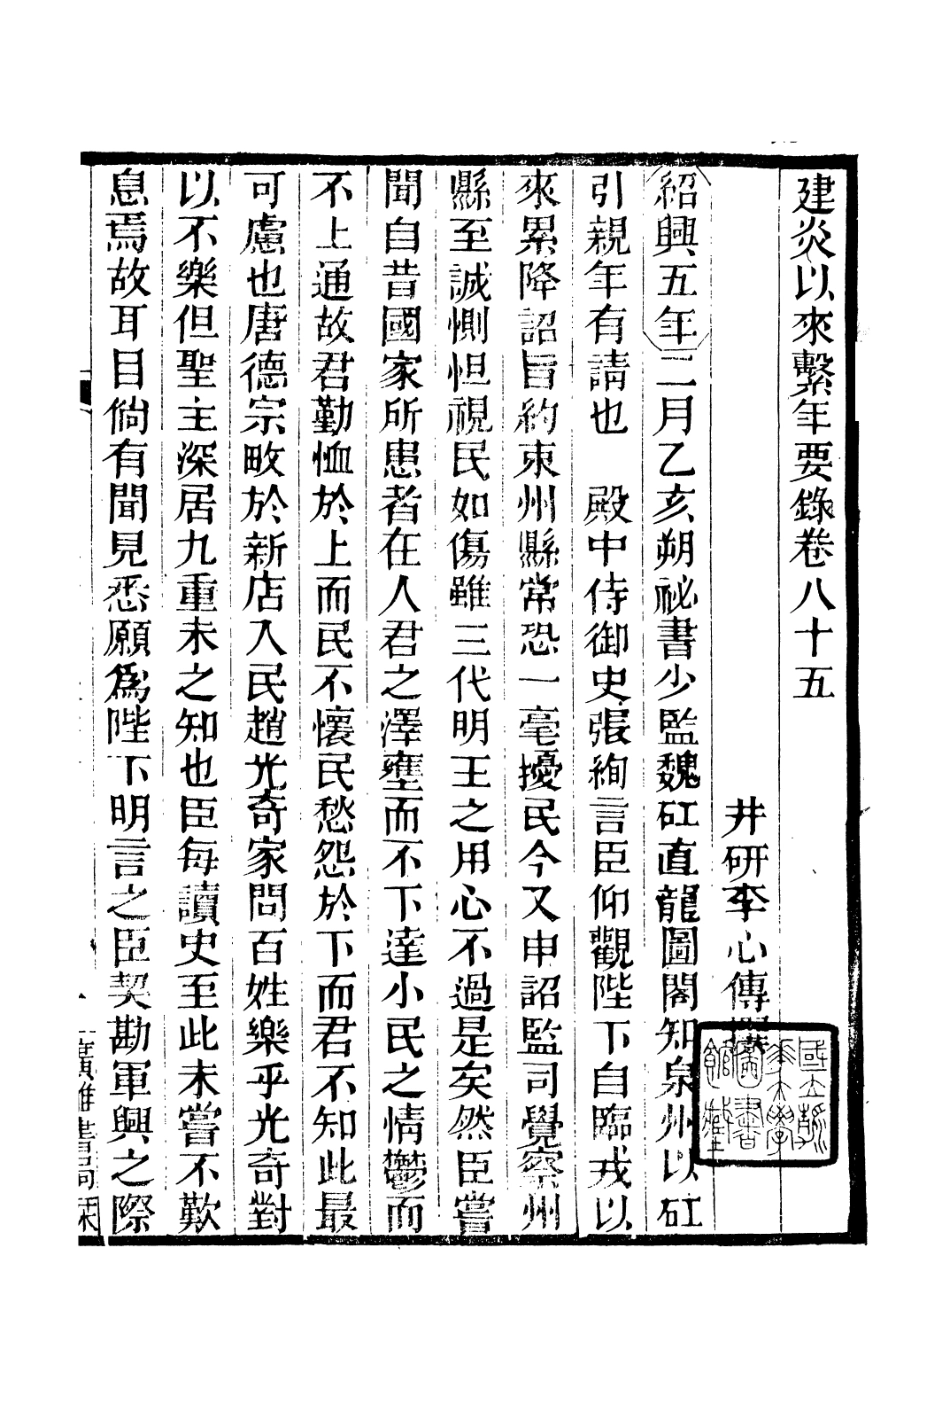 建炎以來繫年要錄卷八十五
井研李心傳撰
紹興五年二月乙亥朔祕書少監魏矼直龍圖閣知泉州以矼
引親年有請也　殿中侍御史張絢言臣仰觀陛下自臨戎以
來累降詔旨約束州縣常恐一毫擾民今又申詔監司覺察州
縣至誠惻怛視民如傷雖三代明王之用心不過是矣然臣嘗
聞自昔國家所患者在人君之澤壅而不下達小民之情鬱而
不上通故君勤恤於上而民不懷民愁怨於下而君不知此最
可慮也唐德宗畋於新店入民趙光奇家問百姓樂乎光奇對
以不樂但聖主深居九重未之知也臣每讀史至此未嘗不歎
息焉故耳目倘有聞見悉願爲陛下明言之臣契勘軍興之際
廣雅書局栞